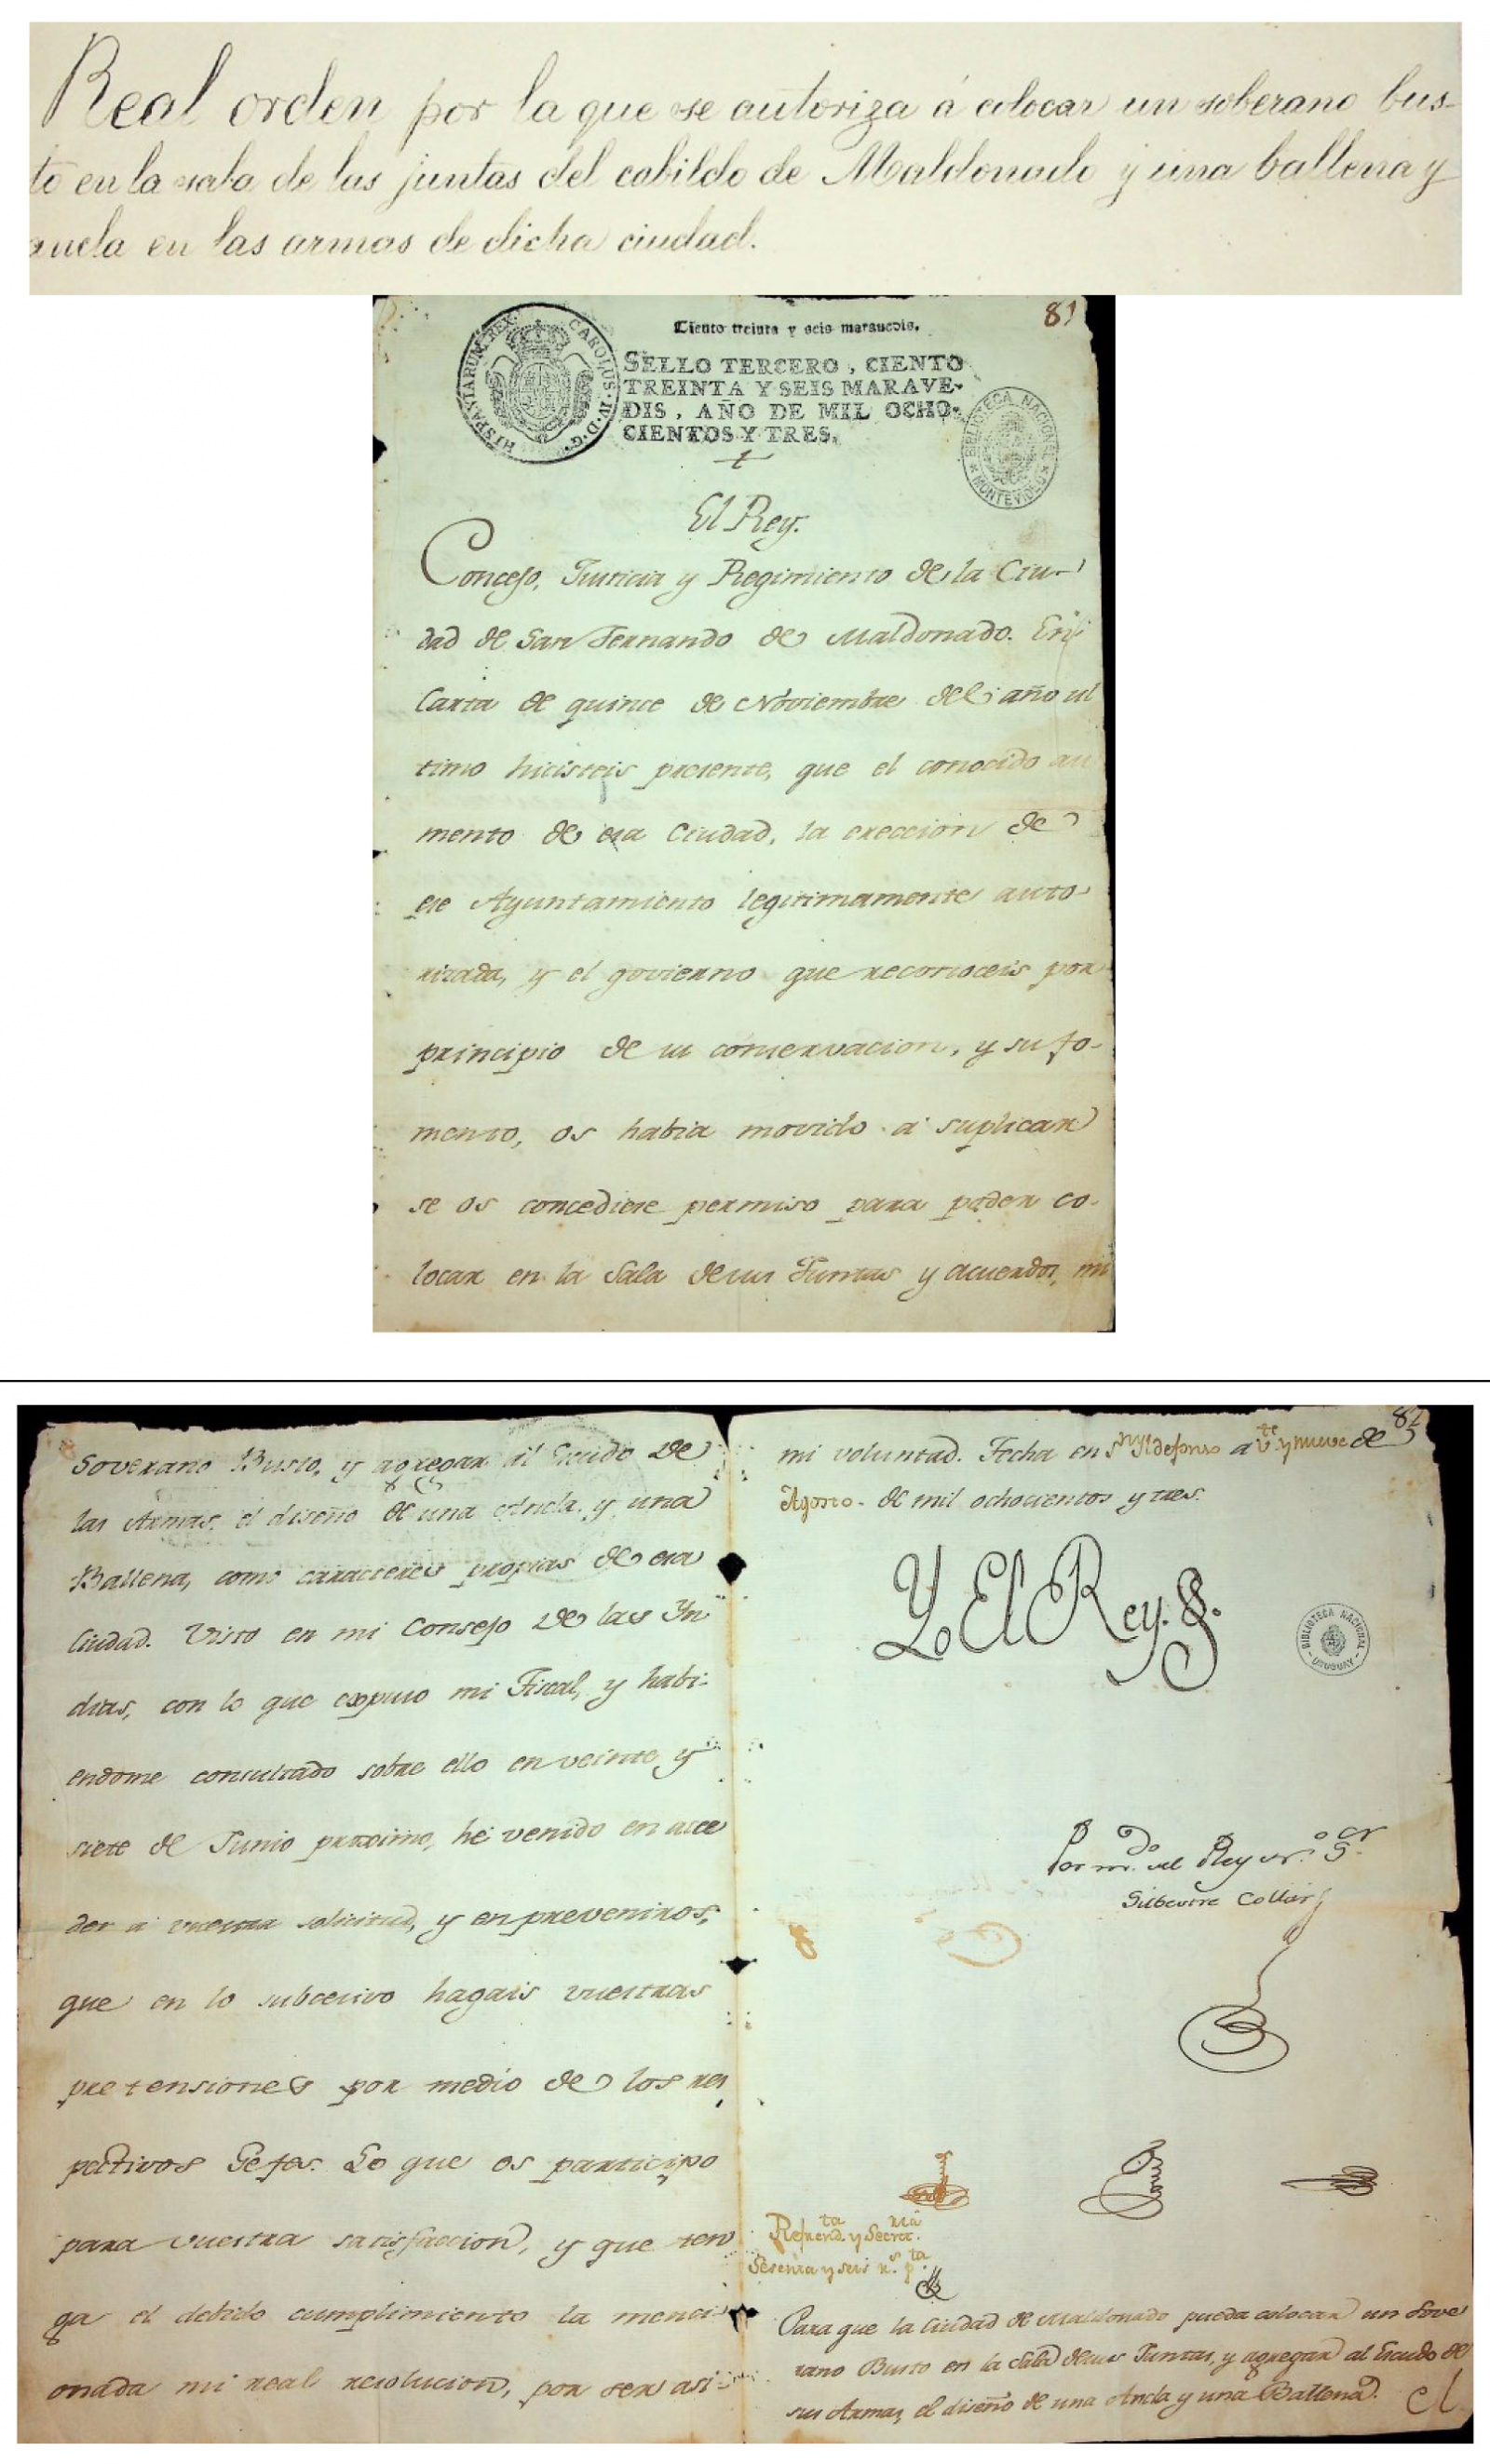 Real orden por la que se autoriza á colocar un soberano bus-
to en la sala de las juntas del cabildo de Maldonado y una ballena y
ancla en las armas de dicha ciudad.
81
Ciento treinta y seis maravedis.
HISPANIARUM REX CAROLUS IV D G
SELLO TERCERO, CIENTO
TREINTA Y SEIS MARAVE-
DIS, AÑO DE MIL OCHO-
CIENTOS Y TRES.
BIBLIOTECA NACIONAL
MONTEVIDEO
El Rey.
Concejo, Justicia y Regimiento de la Ciu-
dad de San Fernando de Maldonado. En
Carta de quince de Noviembre del año ul
timo hicisteis presente, que el conocido au
mento de esa Ciudad, la ereccion de
ese Ayuntamiento legitimamente auto-
rizada, y el govierno que reconoceis por
principio de su conservacion, y su fo-
mento, os habia movido a suplicar
se os concediese permiso para poder co-
locar en la Sala de sus Juntas y acuerdos, mi
Soverano Busto, y agregar al Escudo de
las Armas, el diseño de una Ancla y una
Ballena, como caracteres propias de esa
Ciudad. Visto en mi Consejo de las Yn
dias, con lo que expuso mi Fiscal, y habi-
endome consultado sobre ello en veinte y
siete de Junio proximo, hé venido en acce
der a vuestra solicitud, y en preveniros,
que en lo subcesivo hagais vuestras
pretensiones por medio de los res
pectivos Gefes. Lo que os participo
para vuestra satisfaccion, y que ten
ga el debido cumplimiento la menci-
onada mi real resolucion, por ser asi
82
mi voluntad. Fecha en Sn Yldefonso a vte y nueve de
Agosto de mil ochocientos y tres.
Yo El Rey.
BIBLIOTECA NACIONAL
URUGUAY
Por mdo del Rey nro Sor
Silvestre Collar
Refrenda y Secret ria
Sesenta y seis rs pta
Para que la Ciudad de Maldonado pueda colocar un Sove
rano Busto en la Sala de sus Juntas, y agregar al Escudo de
sus Armas, el diseño de una Ancla y una Ballena.